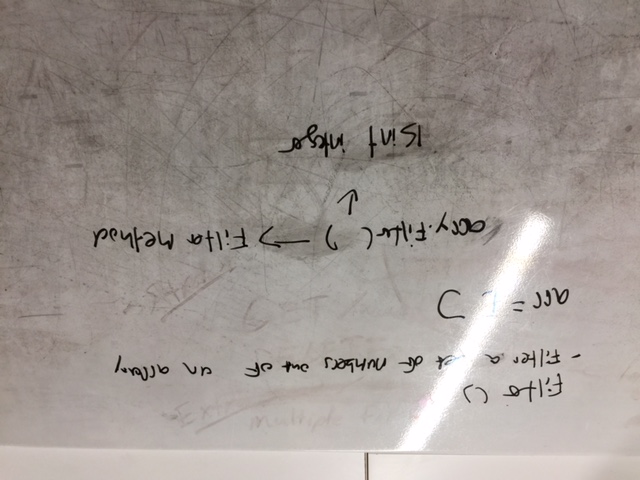 Filter ()
- Filter a set of numbers out of an array
arr = [ ]
array.Filter( ) → Filter Method
↓
isint integer